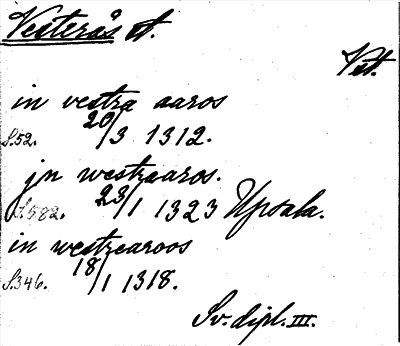 Vesterås st.
Vst.
in vestra aaros
S. 52. 20/3 1312.
jn westraaros.
S. 582. 23/1 1323 Upsala.
in westrearoos
S. 346. 18/1 1318.
Sv. dipl. III.